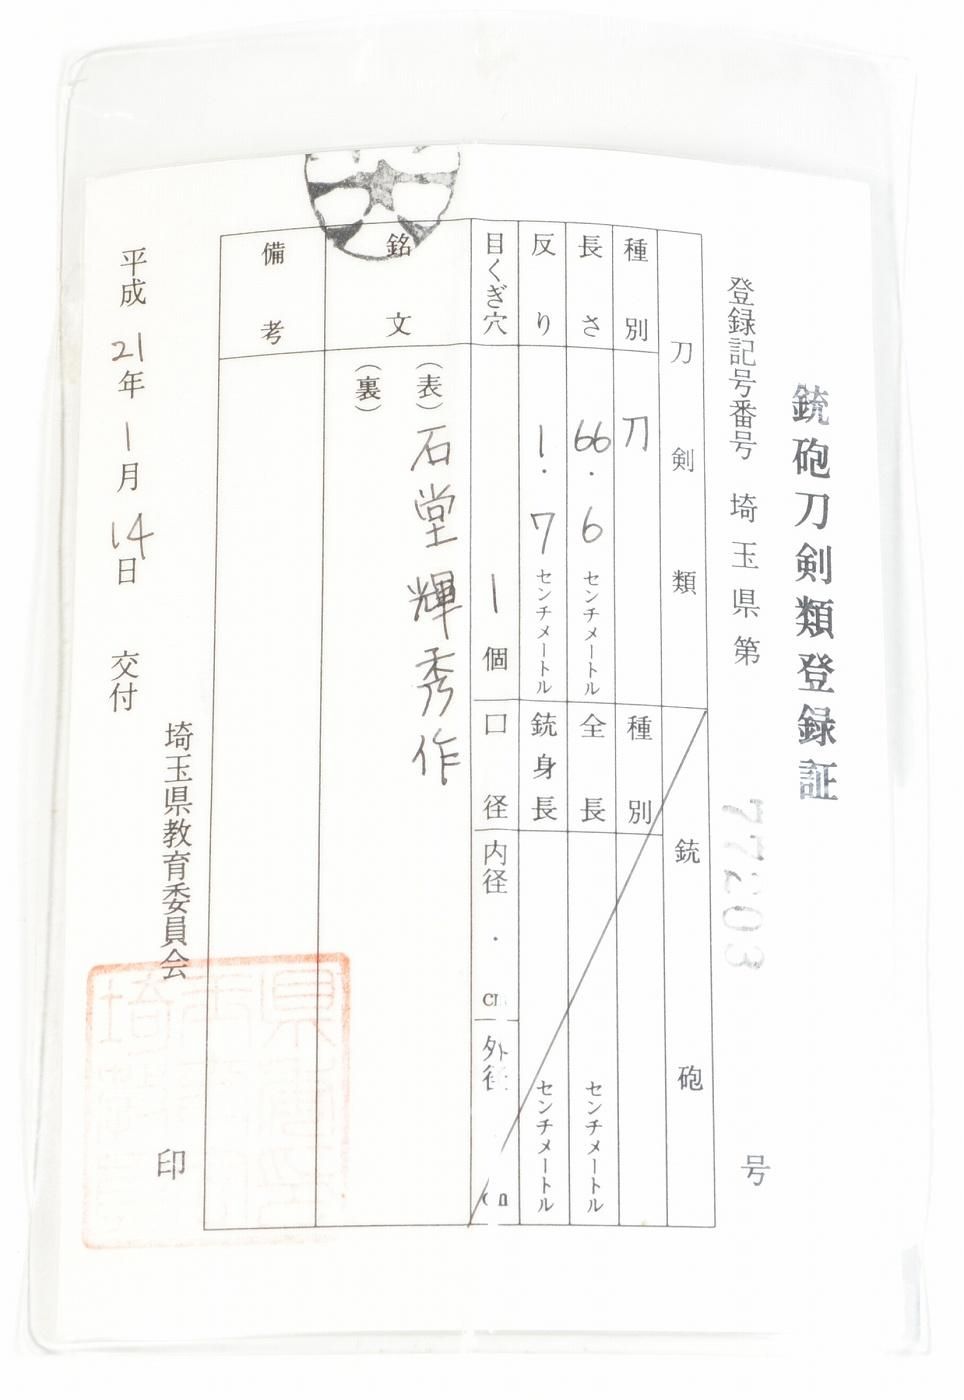 銃砲刀剣類登録証
登録記号番号 埼玉県第 77203 号
刀剣類
種別 刀
長さ 66.6 センチメートル
反り 1.7 センチメートル
目くぎ穴 1個
銘文
(表)石堂輝秀作
(裏)
備考
銃砲
種別
全長 センチメートル
銃身長 センチメートル
口径 内径 . cm 外径 cm
平成21年1月14日 交付
埼玉県教育委員会 印